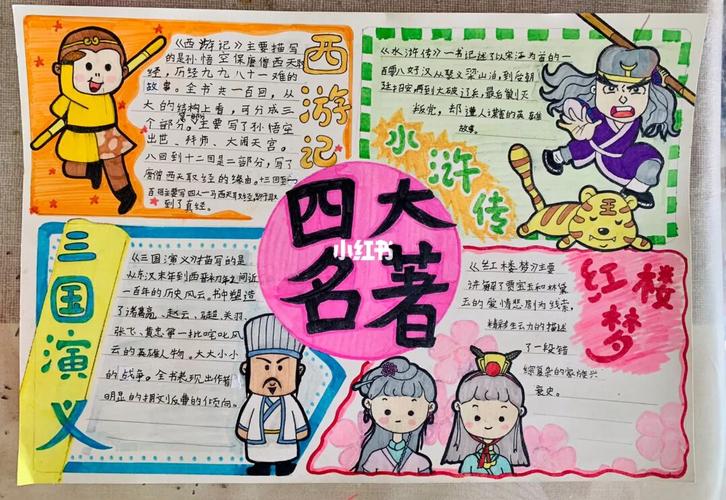 四大名著
小红书
西游记
《西游记》主要描写
的是孙悟空保唐僧西天取
经，历经九九八十一难的
故事。全书共一百回，从
大的结构上看，可分成三
个部分。主要写了孙悟空
出世、拜师、大闹天宫。
八回到十二回是二部分，写了
唐僧西天取经的缘由。十三回到一
百回主要写四人一马西天取经
到了真经。
水浒传
《水浒传》一书记述了以宋江为首的一
百零八好汉从聚义梁山泊，到
后剿灭
叛党，却遭人
故事。
三国演义
《三国演义》描写的是
从东汉末年到西晋初年之间近
一百年的历史风云。书中塑造
了诸葛亮、赵云、超、关羽、
张飞、黄忠等一批叱咤风
云的英雄人物。大大小小
的战争。全书表现出作者
明显的拥刘反曹的倾向。
红楼梦
《红楼梦》主要
讲述了贾宝玉和林黛
玉的爱情悲剧为线索，
精彩生动的描述
了一段错
综复杂的家族兴
衰史。
王